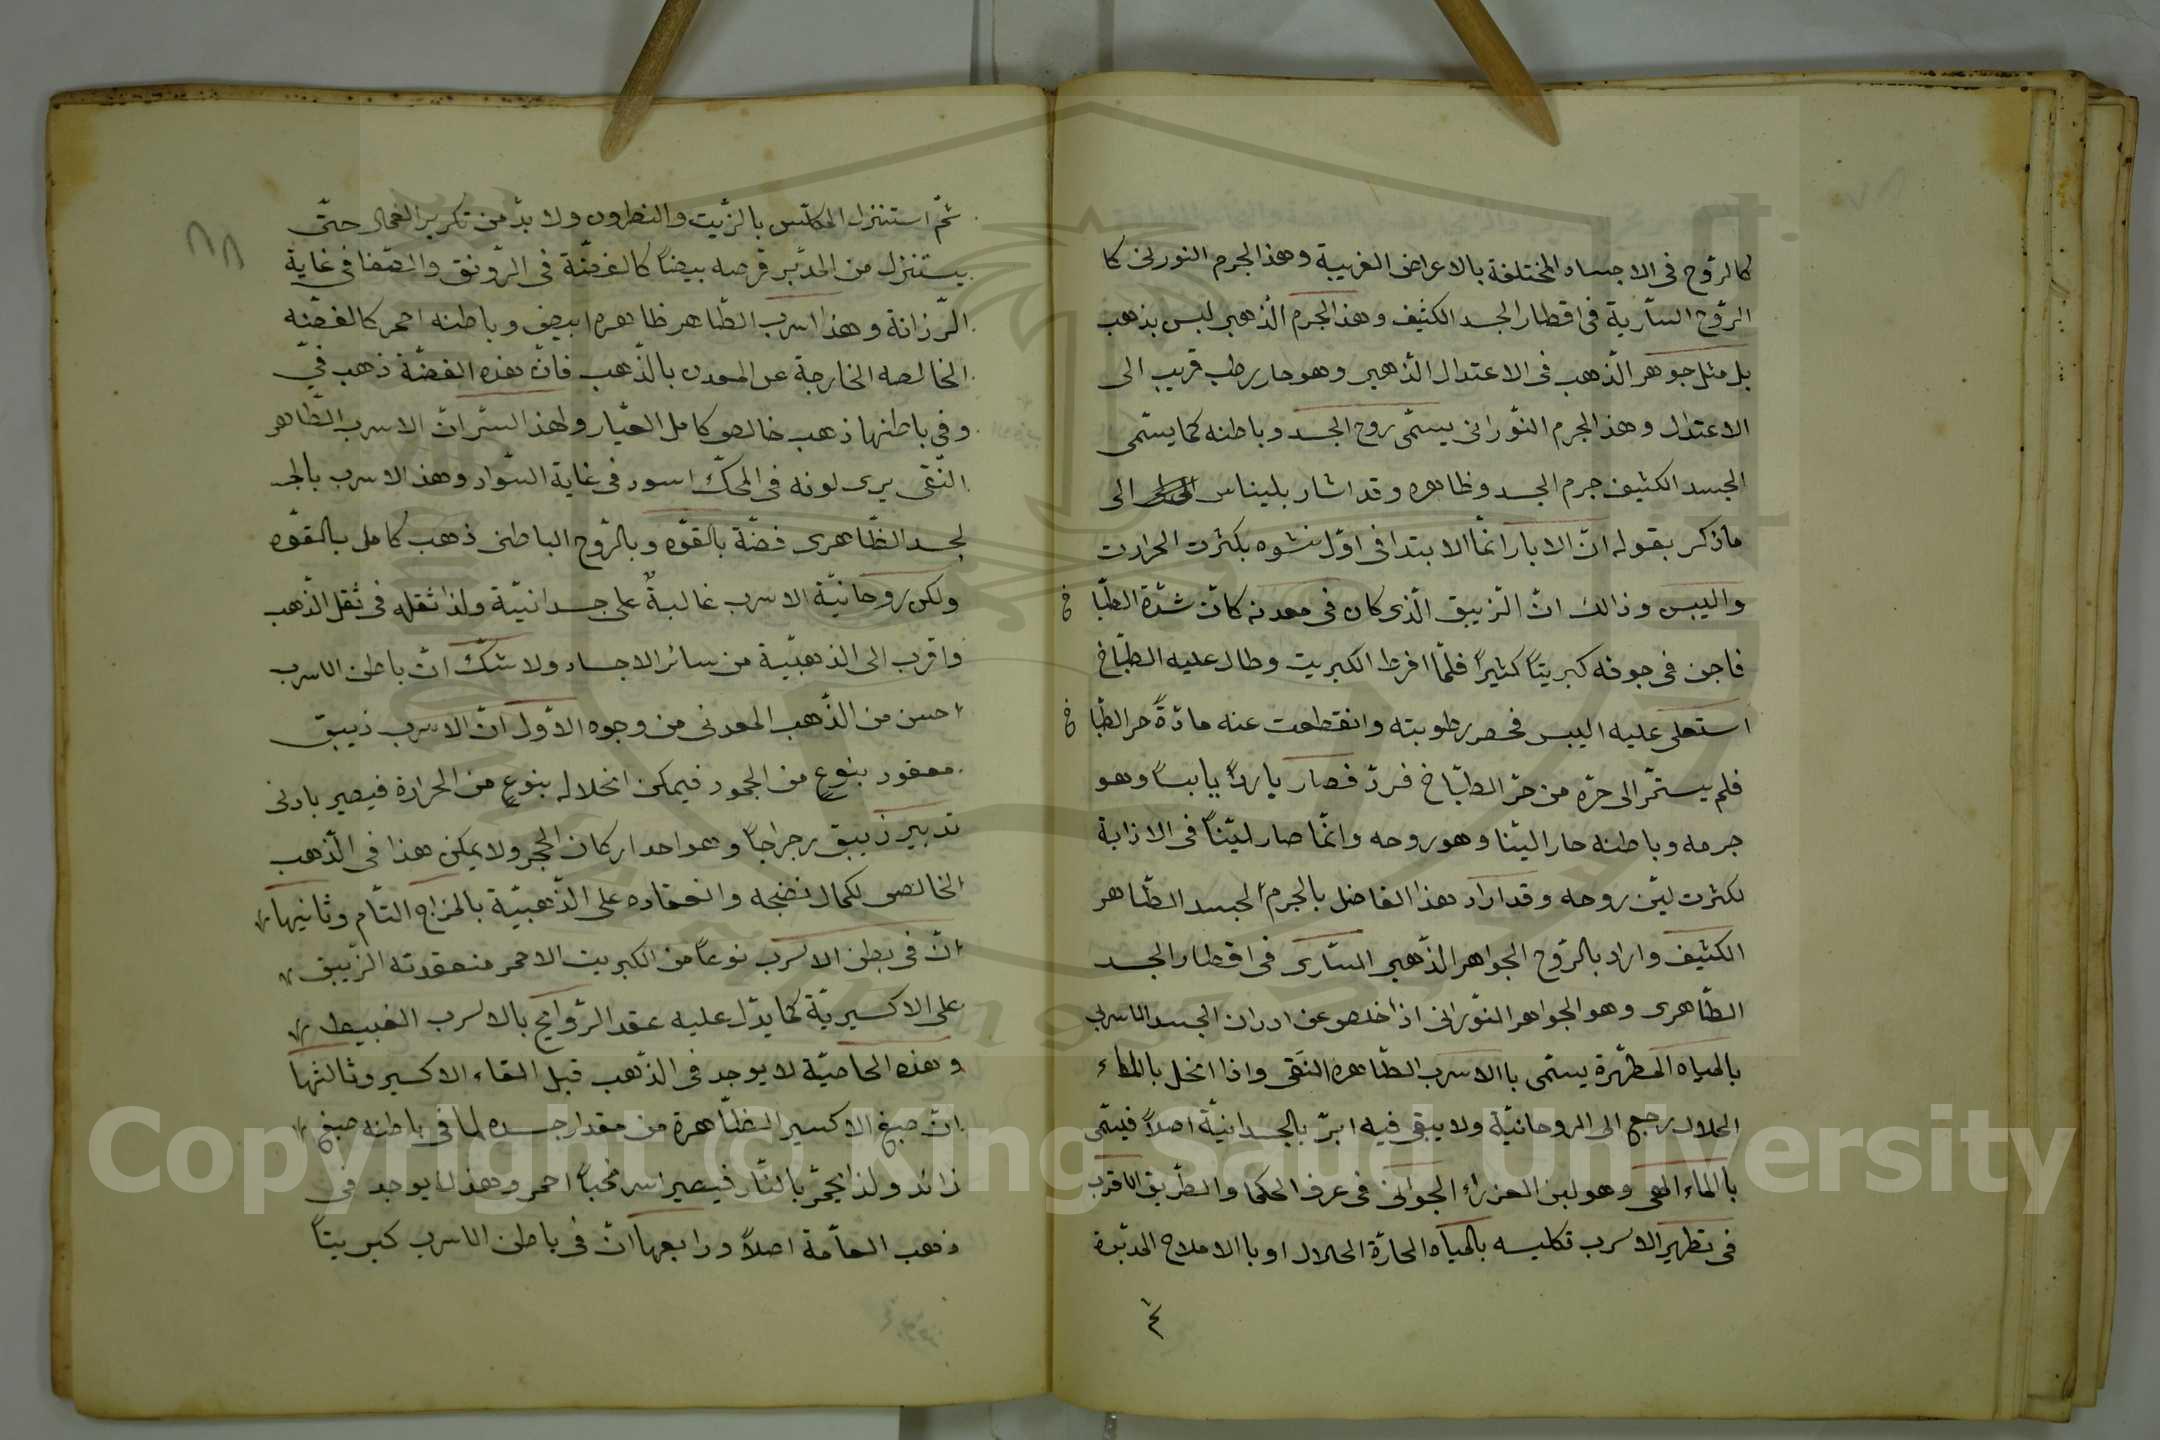 كالرّوح فى الاجساد المختلفة بالاعراض الغريبة وهذا الجرم النورانى كا
الرّوح السّارية فى اقطار الجسد الكثيف وهذا الجرم الذّهبى ليس بذهب
بل مثل جوهر الذّهب فى الاعتدال الذّهبى وهو حار رطب قريب الى
الاعتدال وهذا الجرم النّورانى يسمّى روح الجسد وباطنه كما يسمّى
الجسد الكثيف جرم الجسد وظاهره وقد اشار بليناس الى
ماذكر بقوله انّ الابار انّما الابتدا فى اوّل نشوه بكثرت الحرارت
واليبس وذالك انّ الزّيبق الّذى كان فى معدنه كانّ شدّة الطبّا خ
فاجن فى جوفه كبريتاً كثيراً فلمّا افرط الكبريت وطال عليه الطبّاخ
استعلى عليه اليبس فحصر رطوبته وانقطعت عنه مادّةً حر الطبّا خ
فلم يستمرّ الى حرّه من حرّ الطبّاخ فردّ فصار بارداً يابساً وهو
جرمه وباطنه حار اليّنا وهو روحه وانّما صار ليّناً فى الاذابة
لكثرت ليّن روحه وقد اراد هذا الفاضل بالجرم الجسد الظّاهر
الكثيف واراد بالرّوح الجواهر الذّهبى السّارى فى اقطار الجسد
الظّاهرى وهو الجواهر النّورانى اذا خلص عن ادران الجسد الاسربى
بالمياه المطهّرة يسمّى باالاسرب الطّاهره النّقى واذا انحل بالماء
الحلال رجع الى الروحانيّة ولا يبقى فيه ابرّ بالجسدانيّة اصلاً فيسّمى
بالماء الهى وهو لبن العزراء الجوّانى فى عرف الحكما والطّريق الاقرب
فى تطهير الاسرب تكليسه بالمياه الحارّة الحلال او باالاملاح المدبّرة
ثمّ
٨٨
ثمّ استنزل المكلّس بالزّيت والنطرون ولا بدّ من تكرير العمال حتّى
يستنزل من المدبّر قرصه بيضاً كالفضّة فى الرّونق والصّفا فى غاية
الرّزانة وهذا اسرب الطّاهر ظاهره ابيض وباطنه احمر كالفضّه
الخالصه الخارجة عن المعدن بالذّهب فانّ هذه الفضّة ذهب فيّ
وفى باطنها ذهب خالص كامل العيّار ولهذ السّر انّ الاسرب الطّاهر
النّقى يرى لونه فى المحكّ اسود فى غاية السّواد وهذ الاسرب بالجـ
لجسد الظّاهرى فضّة بالقوّه وبالرّوح الباطنى ذهب كامل بالقوّه
ولكن روحانيّة الاسرب غالبةٌ على جسدانيّة ولذا ثقله فى ثقل الذّهب
واقرب الى الذهبيّة من سائر الاجساد ولا شكّ انّ باطن الاسرب
احسن من الذّهب المعدنى من وجوه الاوّل انّ الاسرب زيبق
معقود بنوع من الجمود فيمكن انحلاله بنوعٍ من الحرارة فيصير بادنى
تدبير زيبق رجراجاً وهو احد اركان الحجر ولا يمكن هذا فى الذّهب
الخالص لكمال نضجه وانعقاده على الذّهبيّة بالمزاج التّام وثانيها
انّ فى بطن الاسرب نوعاً من الكبريت الاحمر منعقدته الزّيبق
على الاكسيريّة كما يدّل عليه عقد الرّوايح بالاسرب الغبيط
وهذه الخاصيّة لا يوجد فى الذّهب قبل القاء الاكسير وثالثها
انّ صبغ الاكسير الظّاهرة من مقدار جسده لما فى باطنه صبغ
زائد ولذا يحمّر بالنّار فيصير اسرنجاً احمر وهذ لا يوجد فى
ذهب العامّة اصلاً ورابعها انّ فى باطن الاسرب كبريتاً
Copyright © King Saud University